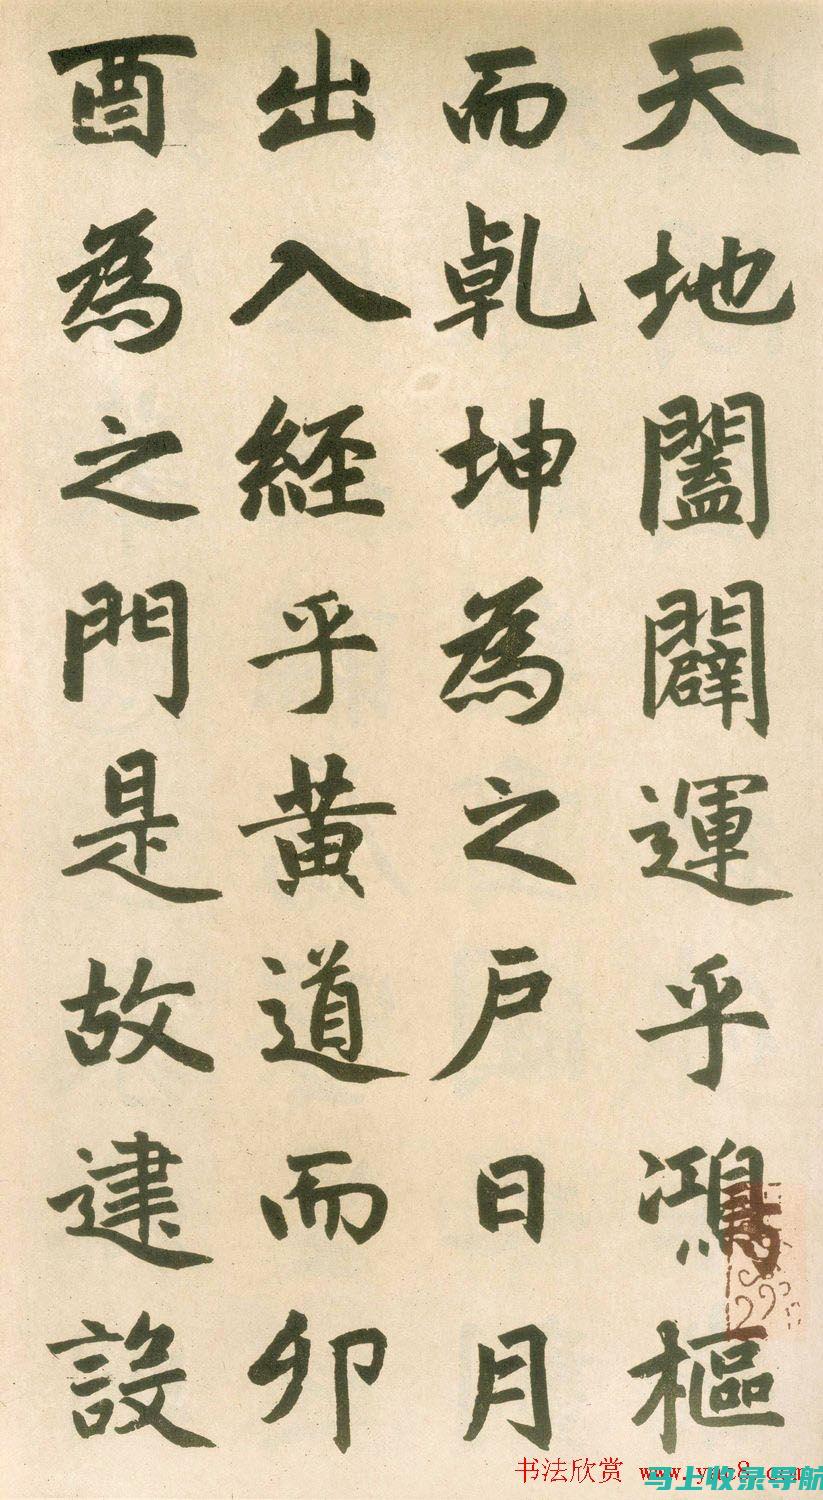 天地闔闢運乎鴻樞
而乹坤為之户日月
出入經乎黃道而卯
酉為之門是故建設
书法欣赏 www.yac8.com
马上收录导航